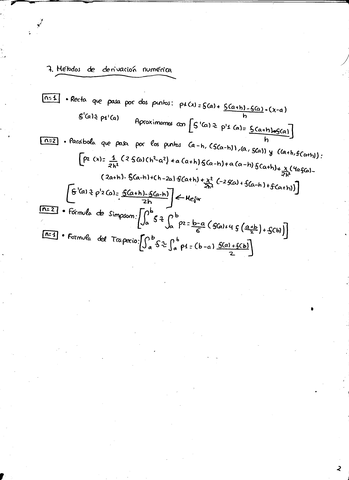 7. Métodos de derivación numérica
n=1 • Recta que pasa por dos puntos: p1(x) = f(a) + f(a+h)-f(a)/h · (x-a)
f'(a) ≈ p1'(a) Aproximamos con [f'(a) ≈ p'1(a) = f(a+h)-f(a)/h]
n=2 • Parábola que pasa por los puntos (a-h, f(a-h)), (a, f(a)) y (a+h, f(a+h)):
[p2(x) = 1/2h² (2f(a)(h²-a²) + a(a+h)f(a-h) + a(a-h)f(a+h) + x/2h² (4af(a) -
(2a+h)·f(a-h) + (h-2a)f(a+h) + x²/2h² (-2f(a) + f(a-h) + f(a+h))]
[f'(a) ≈ p'2(a) = f(a+h)-f(a-h)/2h] ← Mejor
n=2 • Fórmula de Simpson: [∫ₐᵇ f ≈ ∫ₐᵇ p2 = b-a/6 (f(a) + 4f(a+b/2) + f(b))]
n=1 • Fórmula del Trapecio: [∫ₐᵇ f ≈ ∫ₐᵇ p1 = (b-a) f(a)+f(b)/2]
2